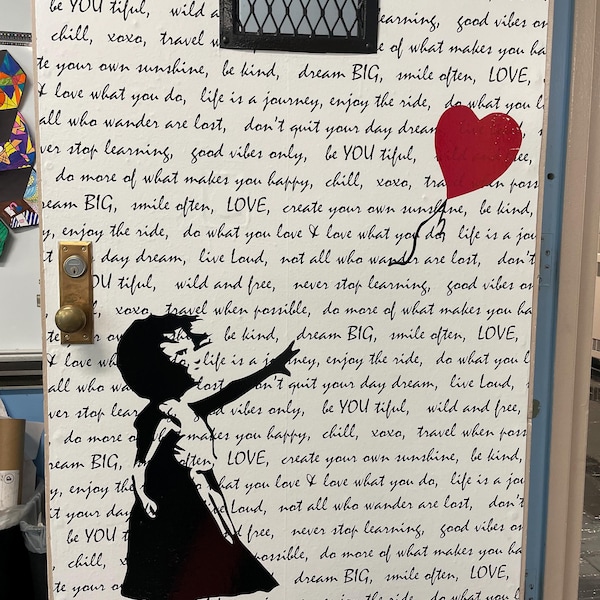 be YOU tiful, wild a learning, good vibes on
chill, xoxo, travel w e of what makes you ha
te your own sunshine, be kind, dream BIG, smile often, LOVE,
& love what you do, life is a journey, enjoy the ride, do what you l
all who wander are lost, don't quit your day dream, live Loud,
ver stop learning, good vibes only, be YOU tiful, wild and free,
do more of what makes you happy, chill, xoxo, travel when poss
ream BIG, smile often, LOVE, create your own sunshine, be kind,
y, enjoy the ride, do what you love & love what you do, life is a jou
t day dream, live Loud, not all who wander are lost, don't
YOU tiful, wild and free, never stop learning, good vibes on
chill, xoxo, travel when possible, do more of what makes you ha
te own be kind, dream BIG, smile often, LOVE,
& love wha do, life is a journey, enjoy the ride, do what you l
all who wa lost, don't quit your day dream, live Loud,
ver stop lear good vibes only, be YOU tiful, wild and free,
do more o makes you happy, chill, xoxo, travel when poss
ream BIG, s often, LOVE, create your own sunshine, be kind,
y, enjoy the hat you love & love what you do, life is a jou
it your day e Loud, not all who wander are lost, don't
be YOU t d free, never stop learning, good vibes on
chill, x possible, do more of what makes you ha
te your o dream BIG, smile often, LOVE,
& love w is a journey, enjoy the ride, do what you l